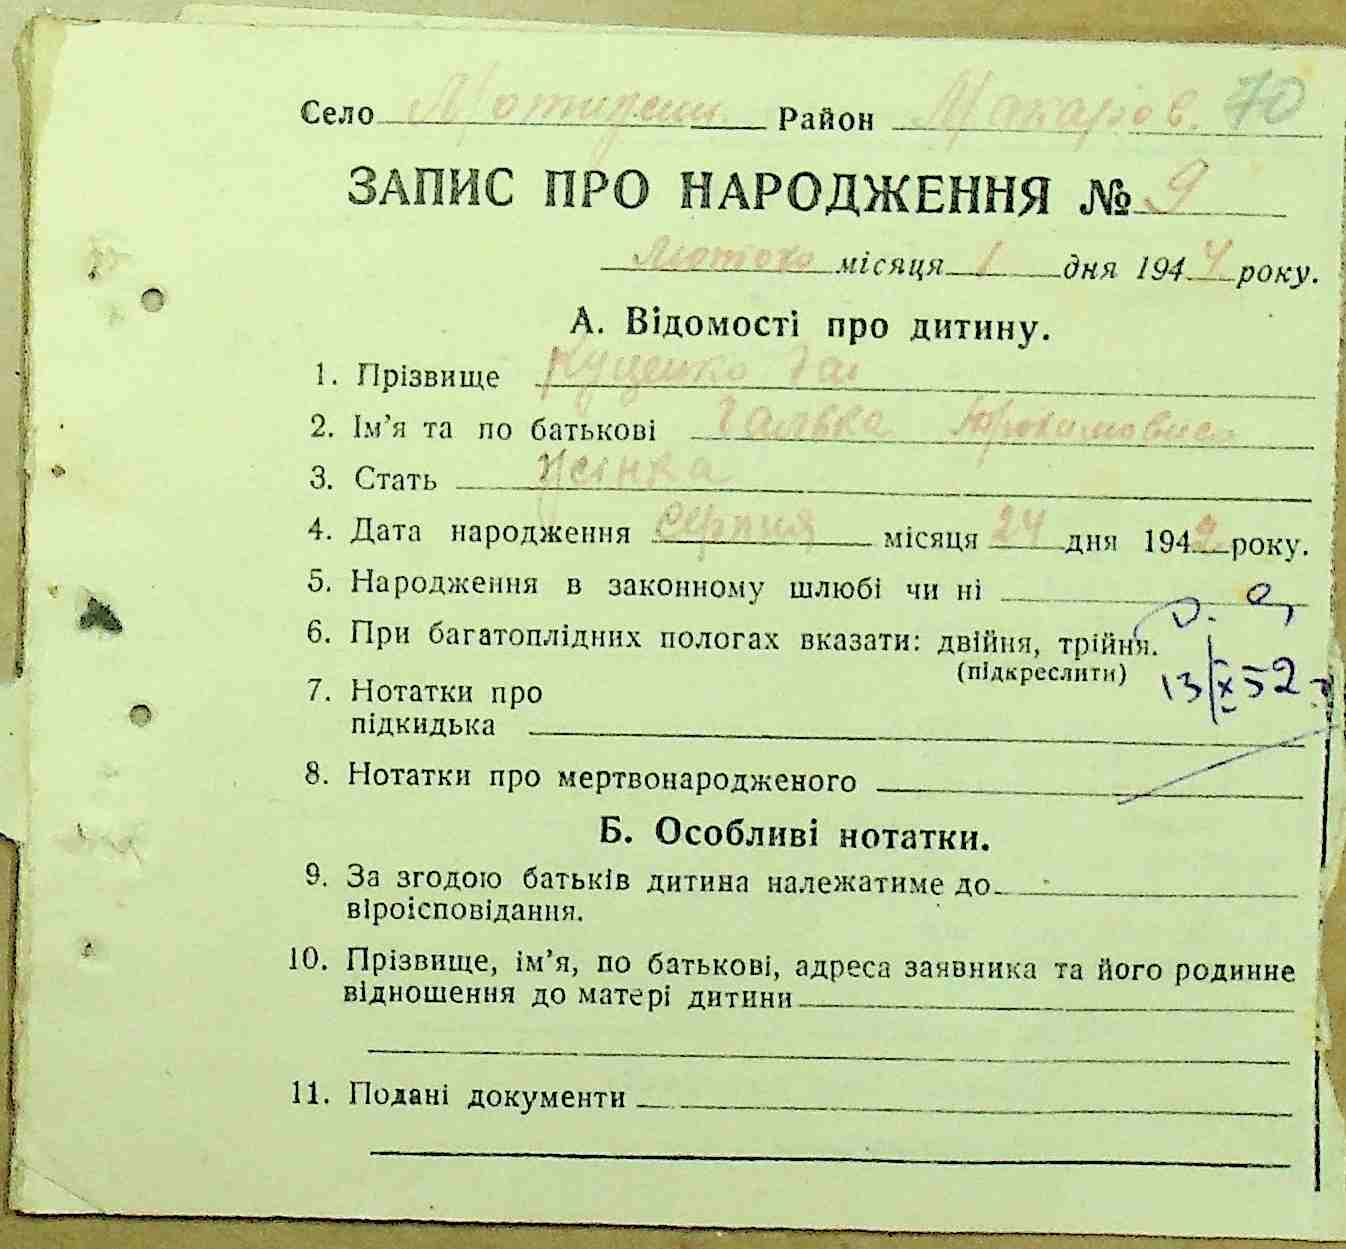 Село Мотижин Район Макарів. 70
ЗАПИС ПРО НАРОДЖЕННЯ № 9
Лютого місяця 1 дня 1944 року.
А. Відомості про дитину.
1. Прізвище Куценко Гал
2. Ім’я та по батькові Галька
3. Стать Жінка
4. Дата народження Серпня місяця 24 дня 194 року.
5. Народження в законному шлюбі чи ні
6. При багатоплідних пологах вказати: двійня, трійня.
(підкреслити)
13/X 52
7. Нотатки про
підкидька
8. Нотатки про мертвонародженого
Б. Особливі нотатки.
9. За згодою батьків дитина належатиме до
віроісповідання.
10. Прізвище, ім’я, по батькові, адреса заявника та його родинне
відношення до матері дитини
11. Подані документи